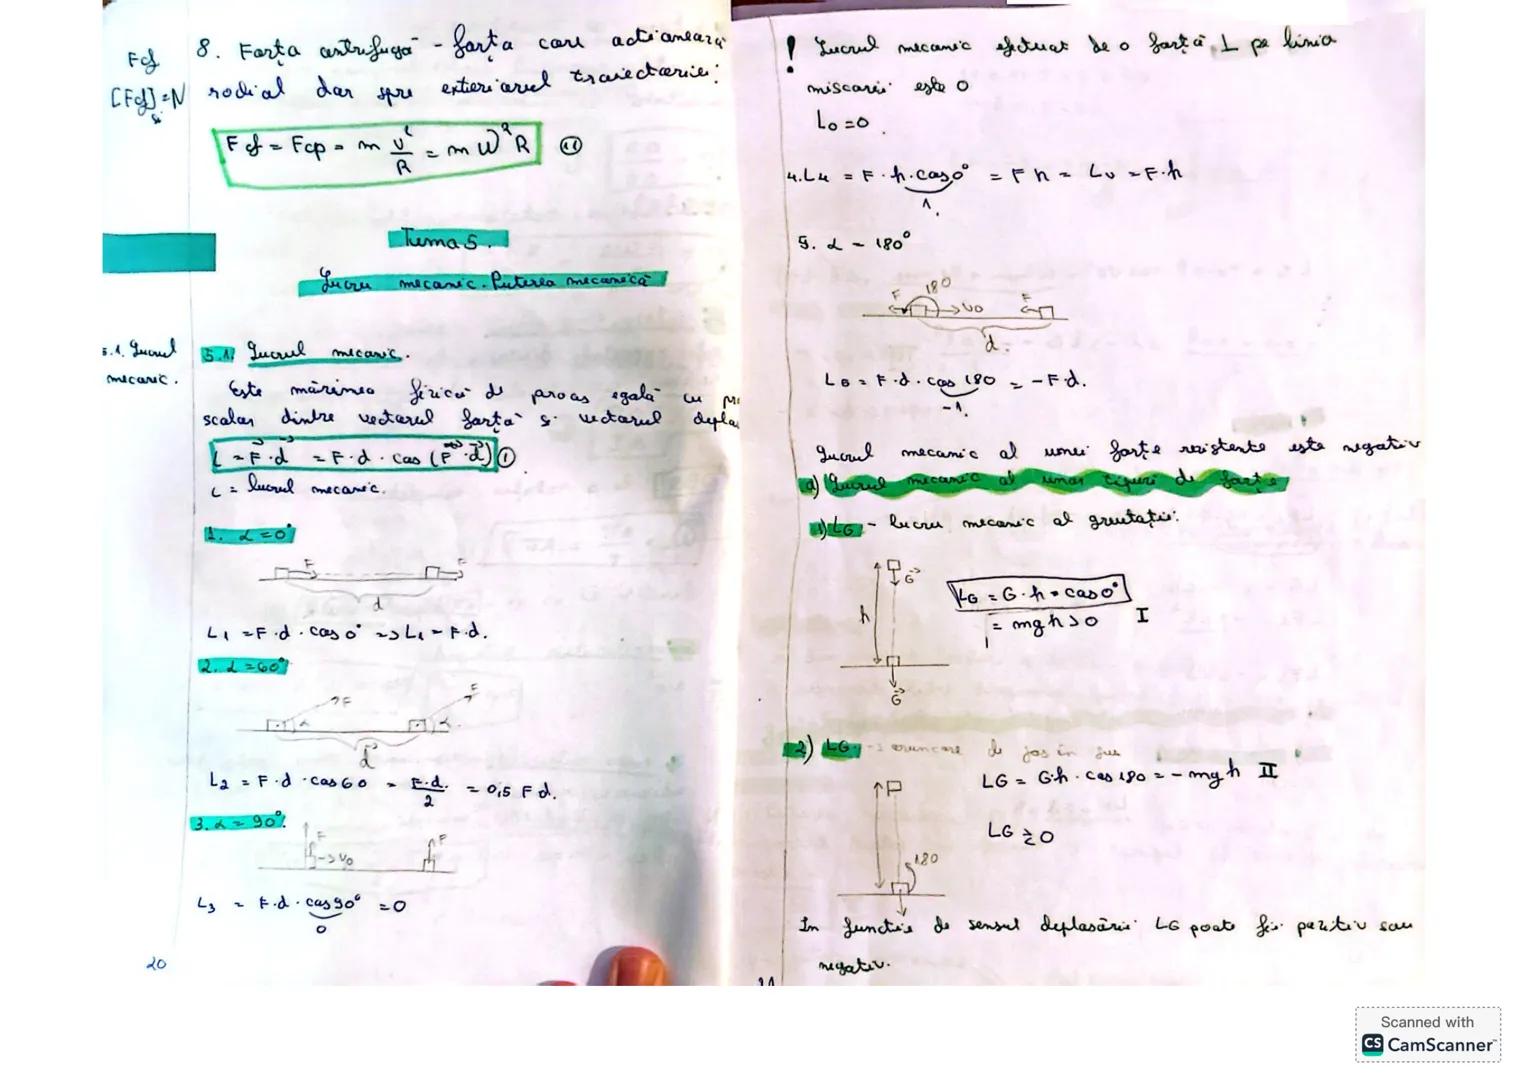 Fcf
[Fcf]SI = N
8. Forța centrifugă - forța care acționează
radial dar spre exteriorul traiectoriei:
Fcf = Fcp = m v²/R = m ω² R (11)
Tema 5.
Lucru mecanic. Puterea mecanică
5.1. Lucrul
mecanic.
5.1. Lucrul mecanic.
Este mărimea fizică de proces egală cu
scalar dintre vectorul forță și vectorul
L = F⃗·d⃗ = F·d·cos(F⃗·d⃗) (1)
L = lucrul mecanic.
1. α = 0°
F F
d
L1 = F·d·cos 0° => L1 = F·d.
2. α = 60°
F F
α α
d⃗
L2 = F·d·cos 60 = F·d./2 = 0,5 F d.
3. α = 90°.
F F
-> v0
L3 = F·d·cos 90° = 0
0
20
! Lucrul mecanic efectuat de o forță ⊥ pe linia
mișcării este 0
L0 = 0.
4. L4 = F·h·cos 0° = F h = Lu = F·h
1.
5. α = 180°
F 180 -> v0 F
d.
L5 = F·d·cos 180 = -F d.
-1.
Lucrul mecanic al unei forțe rezistente este negativ
a) Lucrul mecanic al unor tipuri de forțe
1) LG - lucru mecanic al greutății.
G⃗
h
LG = G·h·cos 0°
= mgh > 0 I
G⃗
2) LG -> aruncare de jos în sus
LG = G·h·cos 180 = - mgh II
LG ≷ 0
180
In funcție de sensul deplasării LG poate fi pozitiv sau
negativ.
Scanned with
CS CamScanner